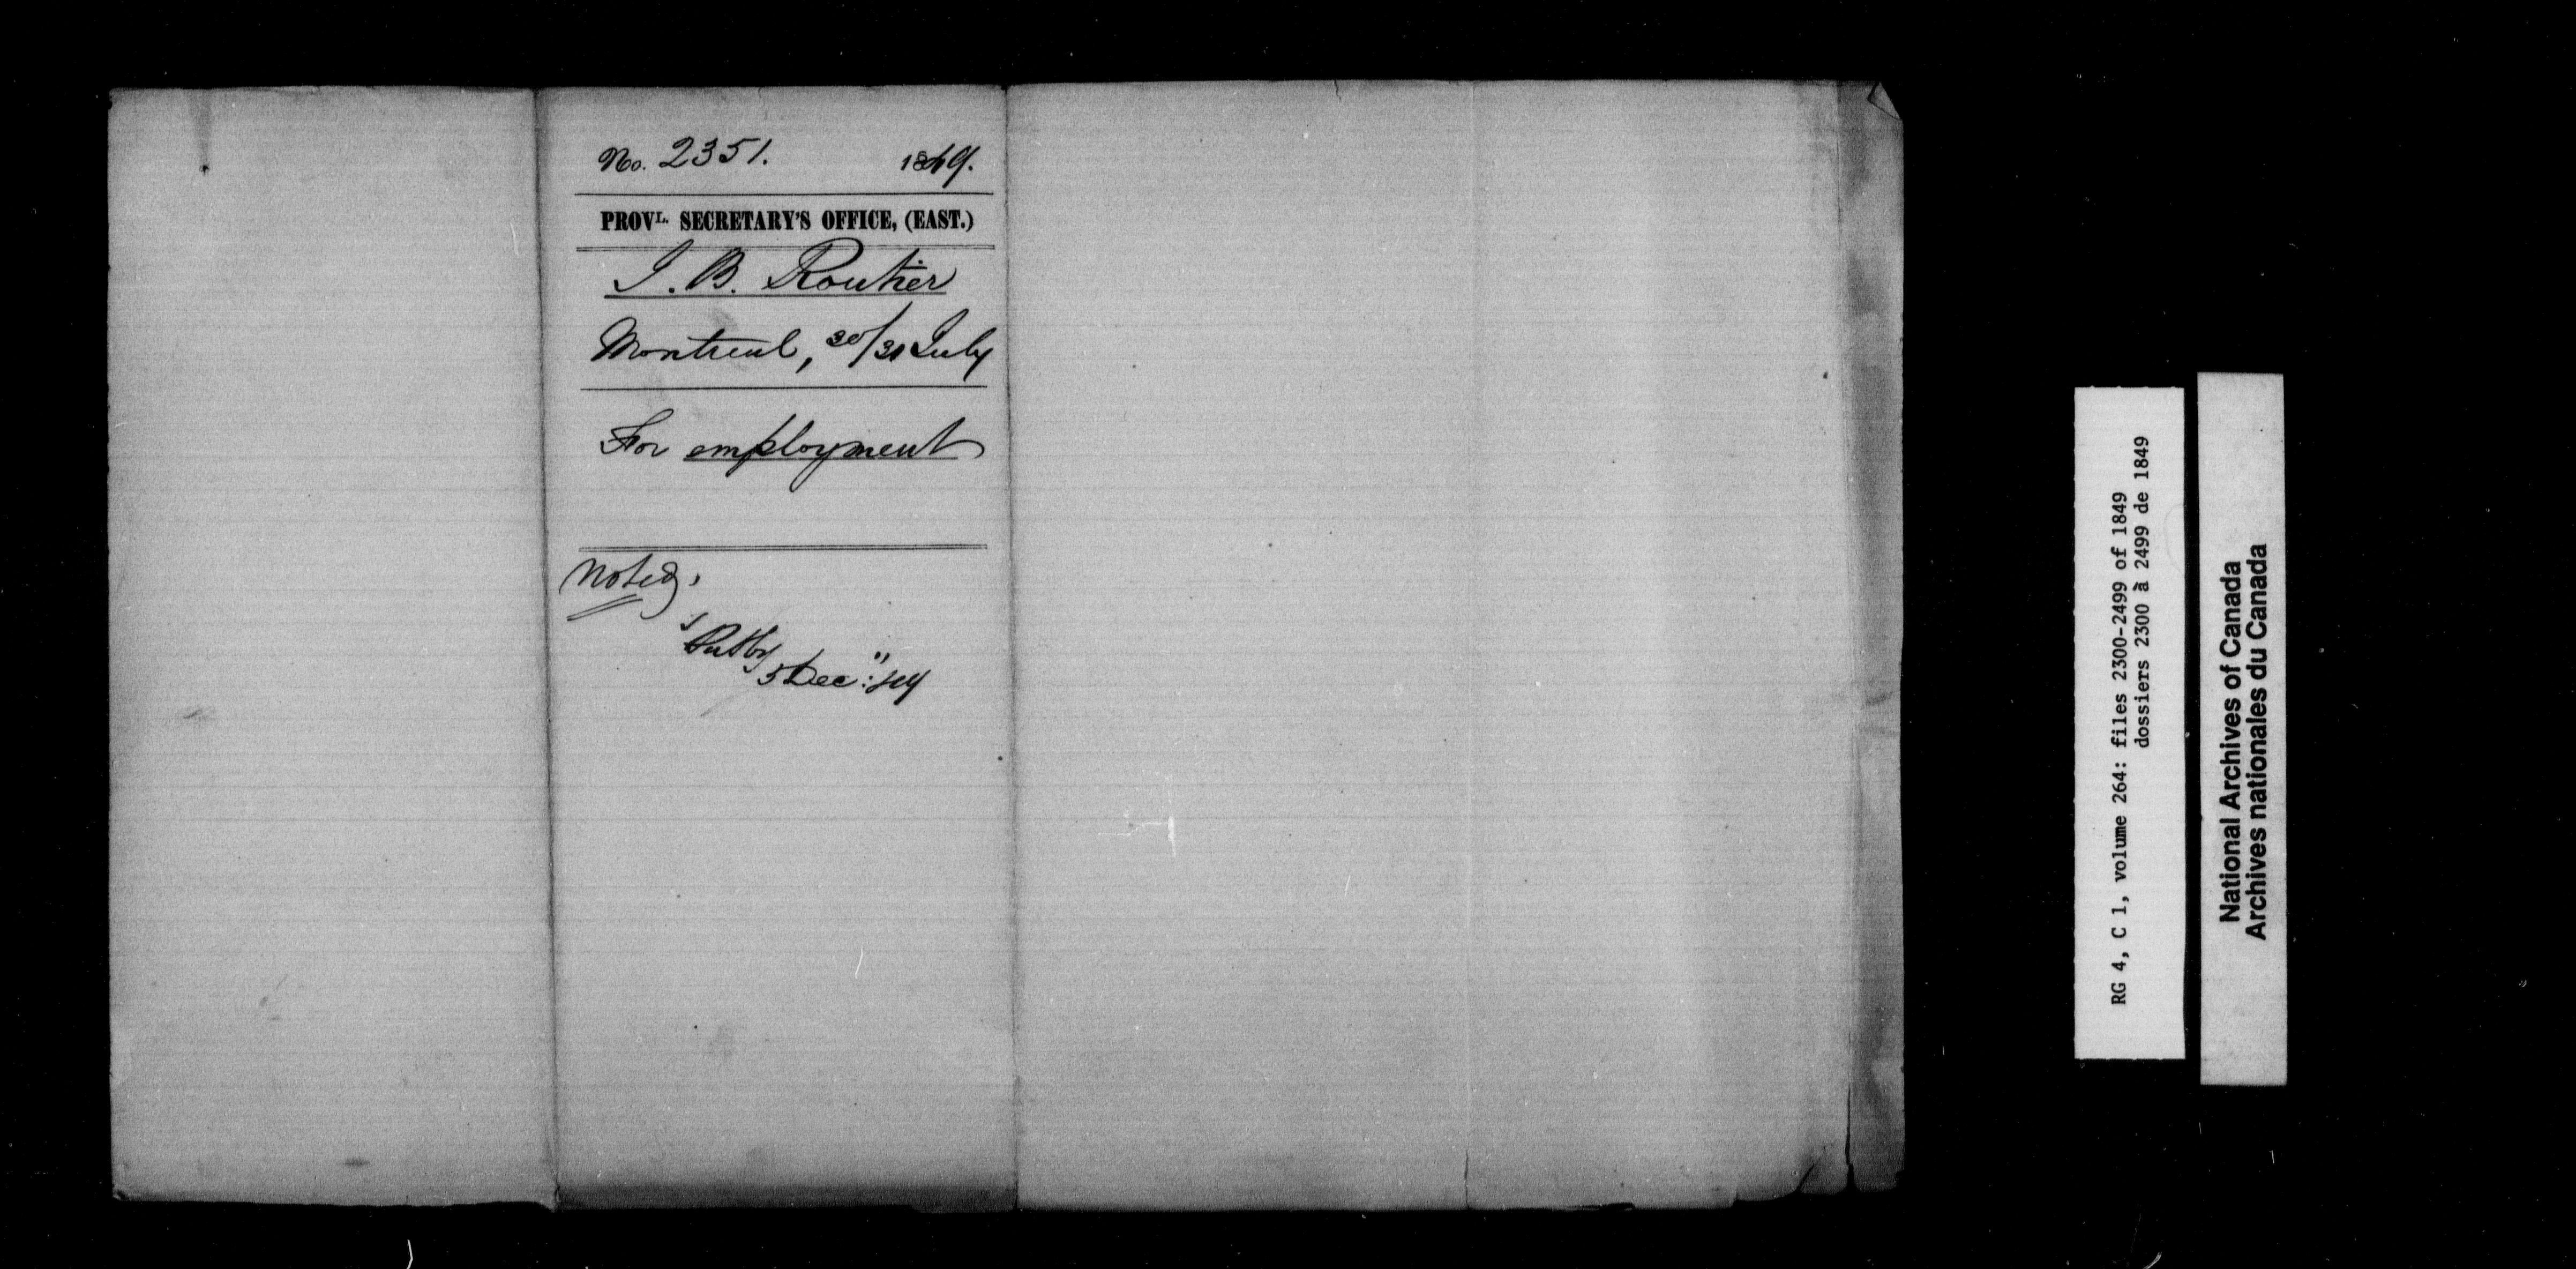 No. 2351. 1849.
PROVL. SECRETARY'S OFFICE, (EAST.)
J. B. Routier
Montreal, 30/31 July
For employment
Noted.
Put by
5 Dec:"
RG 4, C 1, volume 264: files 2300-2499 of 1849
dossiers 2300 à 2499 de 1849
National Archives of Canada
Archives nationales du Canada